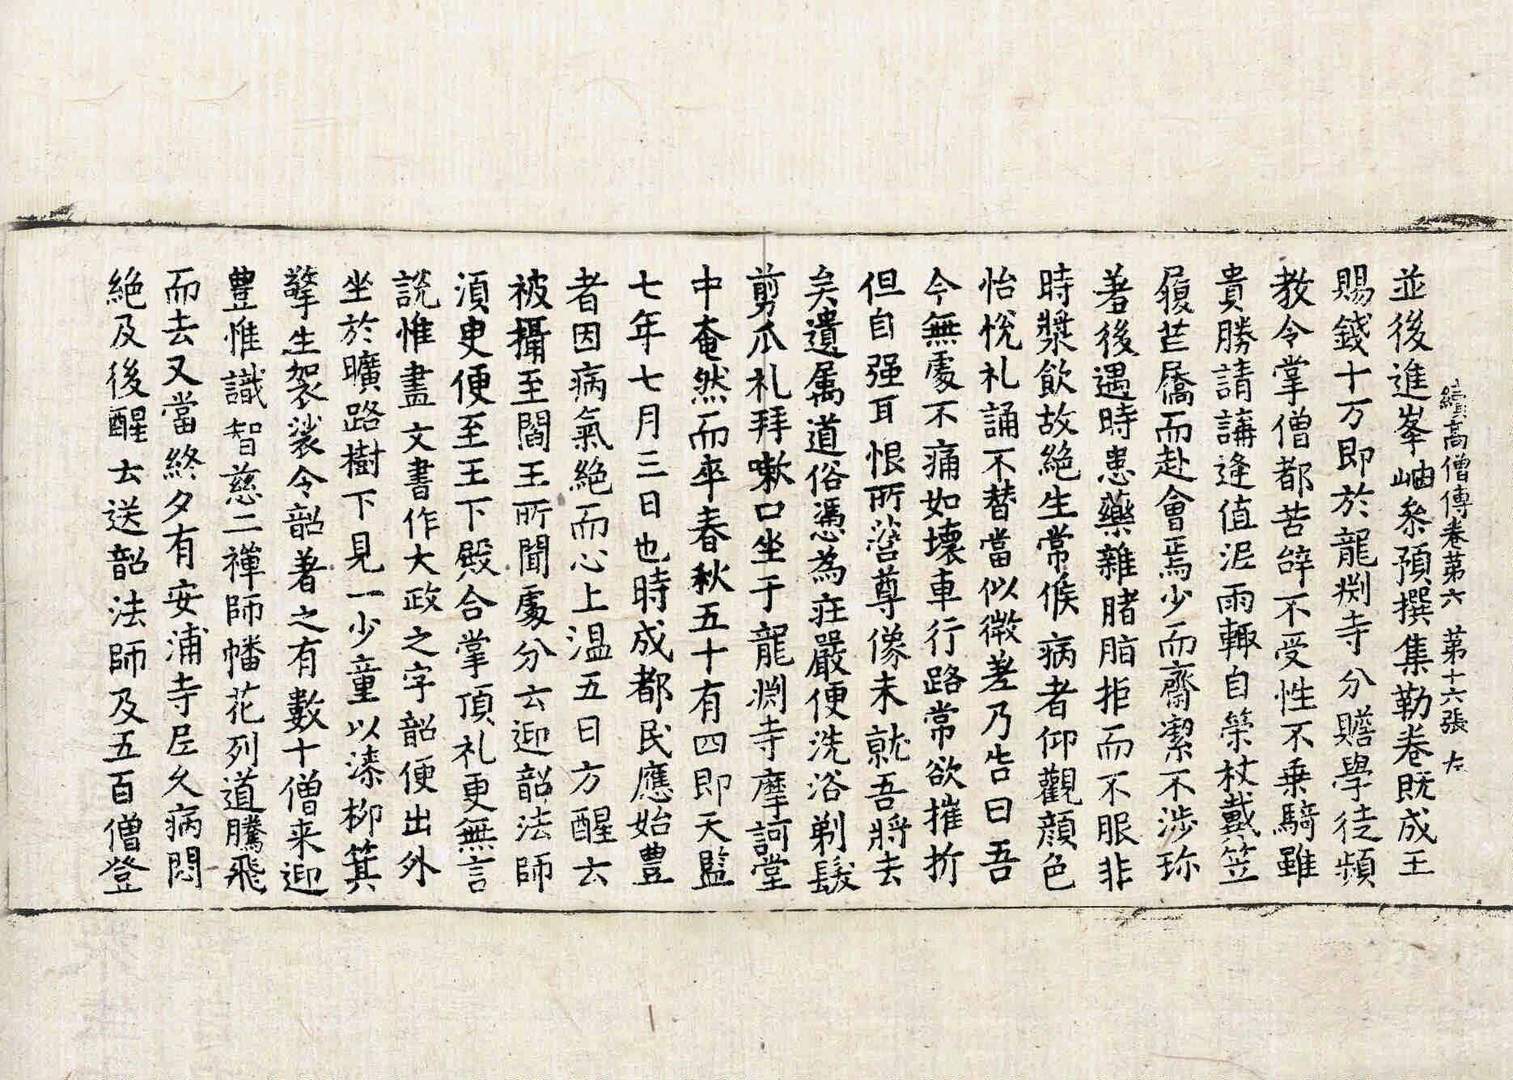 續高僧傳卷第六 第十六張 左
並後進峯岫叅預撰集勒卷既成王
賜錢十万即於龍渕寺分贍學徒頻
教令掌僧都苦辝不受性不乗騎雖
貴勝請講逢值泥雨輙自策杖戴笠
履芒屩而赴會焉少而齋潔不涉珎
著後遇時患藥雜猪脂拒而不服非
時漿飲故絶生常候病者仰觀顔色
怡悅礼誦不替當似微差乃告曰吾
今無處不痛如壊車行路常欲摧折
但自强耳恨所營尊像未就吾將去
矣遺属道俗憑為莊嚴便洗浴剃髮
剪爪礼拜嗽口坐于龍渕寺摩訶堂
中奄然而卒春秋五十有四即天監
七年七月三日也時成都民應始豊
者因病氣絶而心上温五日方醒云
被攝至閻王所聞處分云迎韶法師
湏臾便至王下殿合掌頂礼更無言
說惟書文書作大政之字韶便出外
坐於曠路樹下見一少童以漆柳箕
擎生袈裟令韶著之有數十僧来迎
豊惟識智慈二禪師幡花列道騰飛
而去又當終夕有安浦寺尼久病悶
絶及後醒云送韶法師及五百僧登